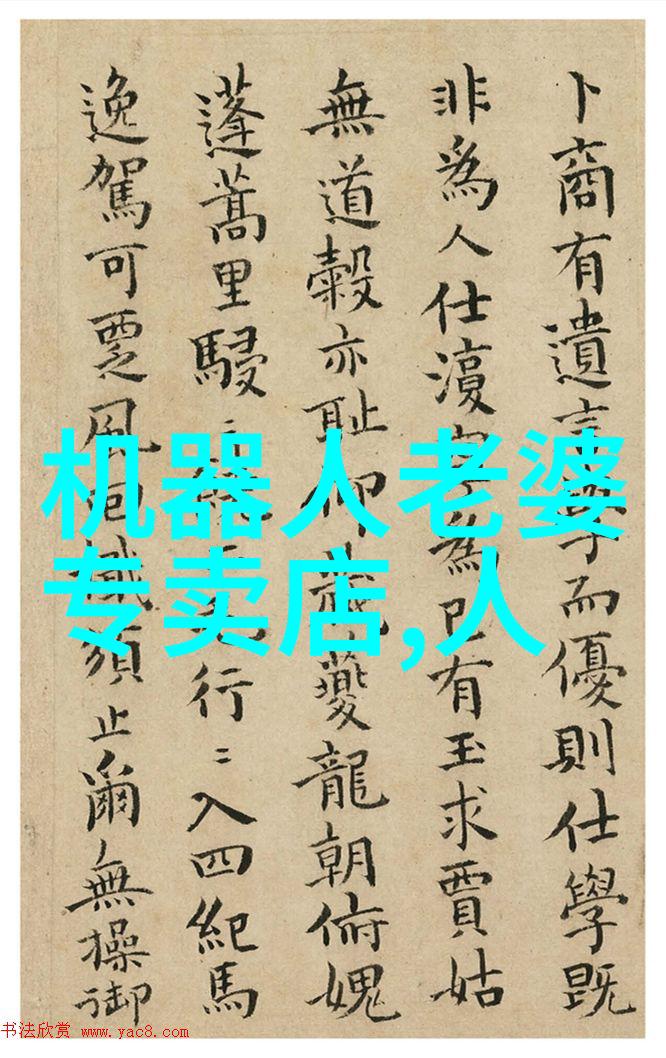 卜商有遺言學而優則仕學既
非為人仕為已有玉求賈姑
無道穀亦恥仰夔龍朝俯愧
蓬蒿里駸行〻入四紀馬
逸駕可覂風回須止爾無操御
机器人老婆
专卖店,人
书法欣赏 www.yac8.com